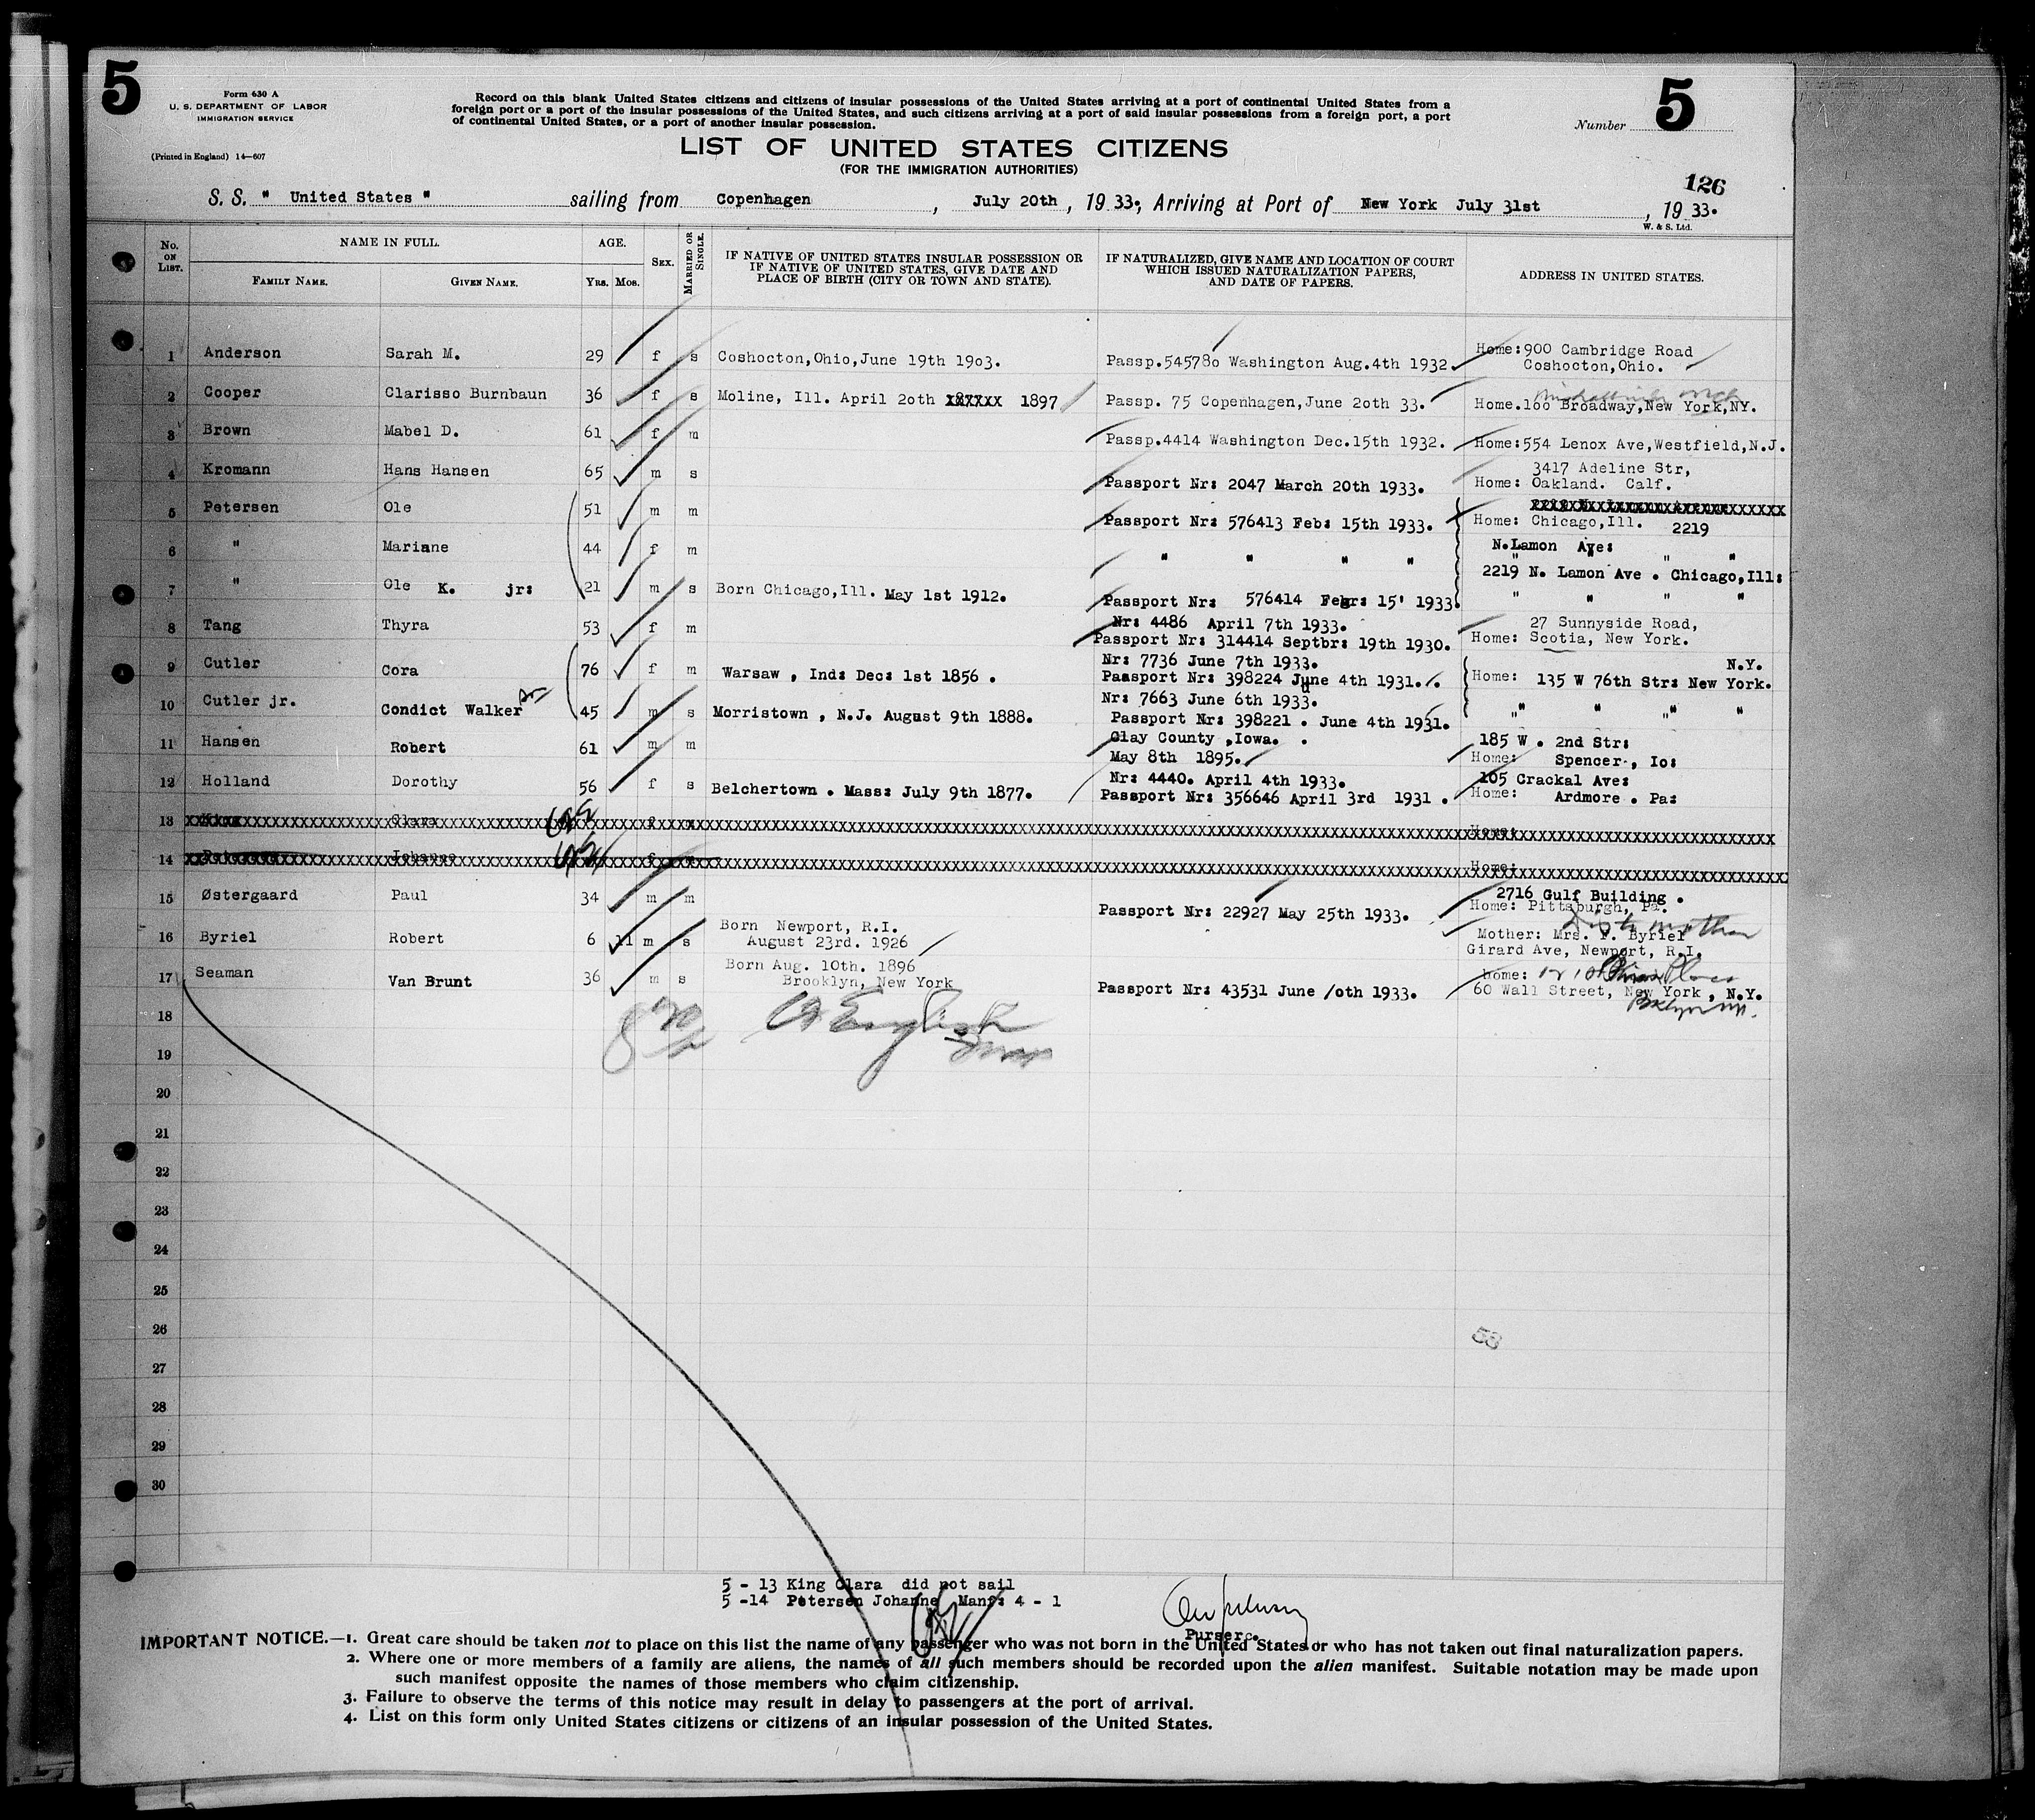 5
Form 630 A
U. S. DEPARTMENT OF LABOR
IMMIGRATION SERVICE
(Printed in England) 14—607
Record on this blank United States citizens and citizens of insular possessions of the United States arriving at a port of continental United States from a
foreign port or a port of the insular possessions of the United States, and such citizens arriving at a port of said insular possessions from a foreign port, a port
of continental United States, or a port of another insular possession.
Number 5
LIST OF UNITED STATES CITIZENS
(FOR THE IMMIGRATION AUTHORITIES)
126
S. S. " United States " sailing from Copenhagen, July 20th, 19 33., Arriving at Port of New York July 31st, 19 33.
W. & S. Ltd.
No. ON LIST.
NAME IN FULL.
FAMILY NAME.
GIVEN NAME.
AGE.
YRS. MOS.
SEX.
MARRIED OR SINGLE.
IF NATIVE OF UNITED STATES INSULAR POSSESSION OR
IF NATIVE OF UNITED STATES, GIVE DATE AND
PLACE OF BIRTH (CITY OR TOWN AND STATE).
IF NATURALIZED, GIVE NAME AND LOCATION OF COURT
WHICH ISSUED NATURALIZATION PAPERS,
AND DATE OF PAPERS.
ADDRESS IN UNITED STATES.
1 Anderson Sarah M. 29 f s Coshocton,Ohio,June 19th 19o3. Passp.54578o Washington Aug.4th 1932. Home:900 Cambridge Road
Coshocton,Ohio.
2 Cooper Clarisso Burnbaun 36 f s Moline, Ill. April 2oth xxxxxx 1897 Passp. 75 Copenhagen,June 2oth 33. Home.16o Broadway,New York,NY.
3 Brown Mabel D. 61 f m Passp.4414 Washington Dec.15th 1932. Home:554 Lenox Ave,Westfield,N.J.
4 Kromann Hans Hansen 65 m s Passport Nr: 2047 March 20th 1933. 3417 Adeline Str,
Home: Oakland. Calf.
5 Petersen Ole 51 m m Passport Nr: 576413 Feb: 15th 1933. Home: Chicago,Ill. 2219
6 " Mariane 44 f m " " " " N.Lamon Ave:
" " " "
7 " Ole K. jr: 21 m s Born Chicago,Ill. May 1st 1912. Passport Nr: 576414 Febr: 15' 1933. 2219 N. Lamon Ave . Chicago,Ill:
" " " "
8 Tang Thyra 53 f m Nr: 4486 April 7th 1933. 27 Sunnyside Road,
Passport Nr: 314414 Septbr: 19th 1930. Home: Scotia, New York.
9 Cutler Cora 76 f m Warsaw , Ind: Dec: 1st 1856 . Nr: 7736 June 7th 1933. N.Y.
Passport Nr: 398224 June 4th 1931. Home: 135 W 76th Str: New York.
10 Cutler jr. Condict Walker 45 m s Morristown , N.J. August 9th 1888. Nr: 7663 June 6th 1933.
Passport Nr: 398221 . June 4th 1931. " " " "
11 Hansen Robert 61 m m Clay County ,Iowa. . 185 W . 2nd Str:
May 8th 1895. Home: Spencer , Io:
12 Holland Dorothy 56 f s Belchertown . Mass: July 9th 1877. Nr: 4440. April 4th 1933. 105 Crackal Ave:
Passport Nr: 356646 April 3rd 1931 . Home: Ardmore . Pa:
13 King Clara f Home:
14 Petersen Johanne f Home:
15 Østergaard Paul 34 m m Passport Nr: 22927 May 25th 1933. 2716 Gulf Building .
Home: Pittsburgh, Pa.
16 Byriel Robert 6 11 m s Born Newport, R.I.
August 23rd. 1926 Mother: Mrs. P. Byriel
Girard Ave, Newport, R.I.
17 Seaman Van Brunt 36 m s Born Aug. 10th. 1896
Brooklyn, New York Passport Nr: 43531 June /oth 1933. home:
60 Wall Street, New York , N.Y.
Bklyn NY.
18
19
20
21
22
23
24
25
26
53
27
28
29
30
5 - 13 King Clara did not sail
5 -14 Petersen Johanne Manf: 4 - 1
Purser.
IMPORTANT NOTICE.—1. Great care should be taken not to place on this list the name of any passenger who was not born in the United States or who has not taken out final naturalization papers.
2. Where one or more members of a family are aliens, the names of all such members should be recorded upon the alien manifest. Suitable notation may be made upon
such manifest opposite the names of those members who claim citizenship.
3. Failure to observe the terms of this notice may result in delay to passengers at the port of arrival.
4. List on this form only United States citizens or citizens of an insular possession of the United States.